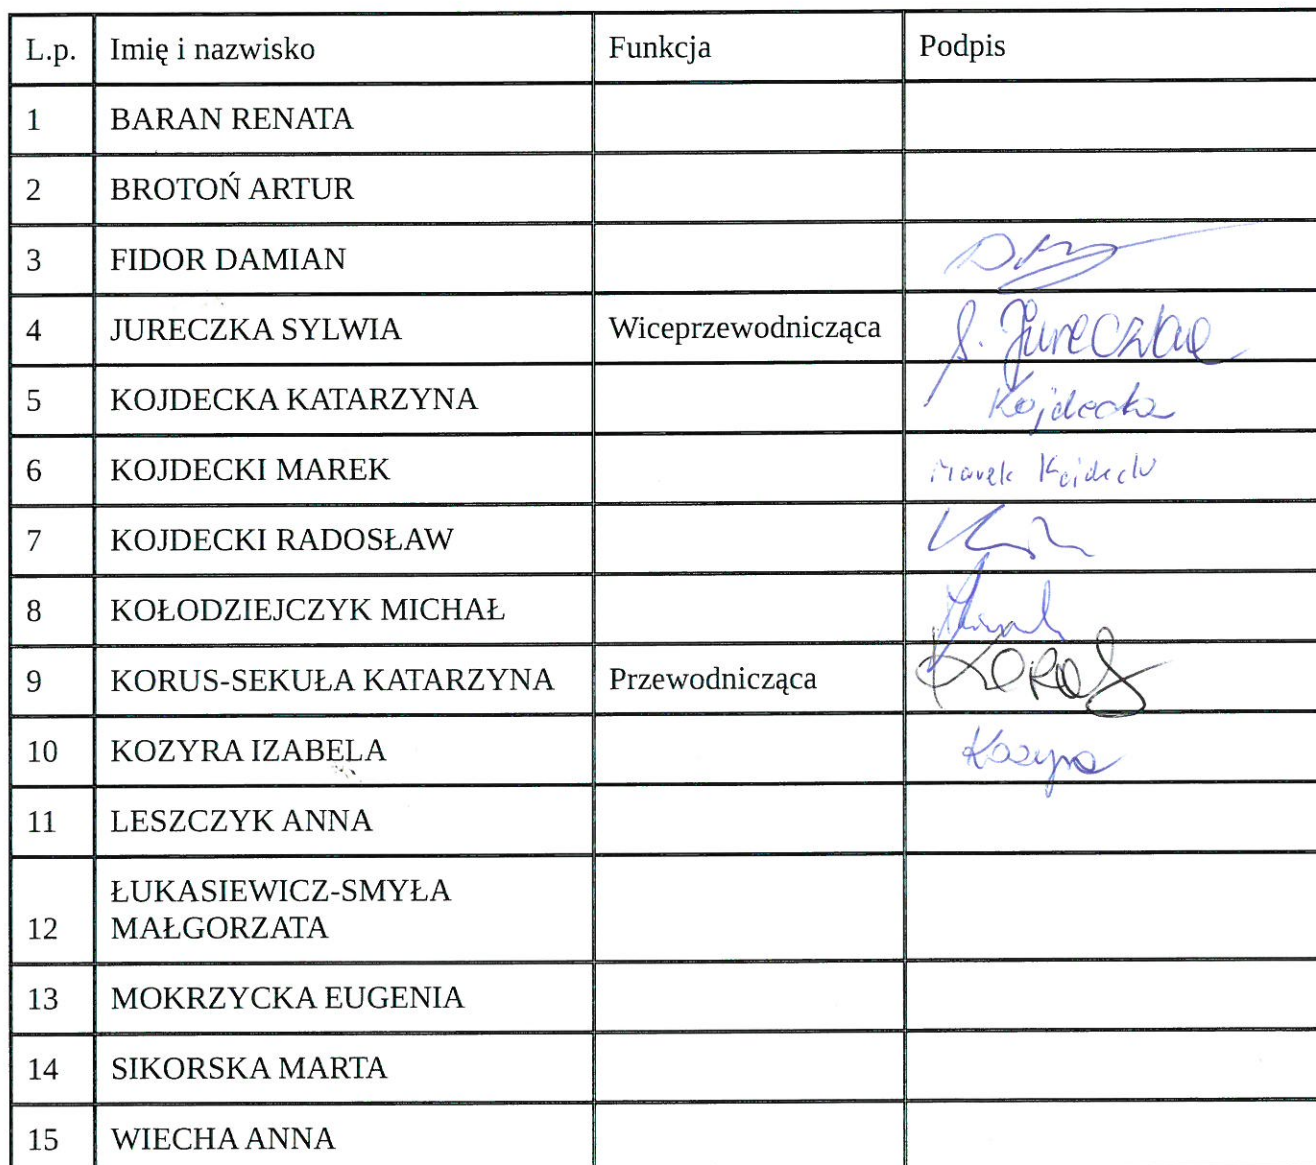 L.p. Imię i nazwisko Funkcja Podpis
1 BARAN RENATA
2 BROTOŃ ARTUR
3 FIDOR DAMIAN
4 JURECZKA SYLWIA Wiceprzewodnicząca S. Jureczka
5 KOJDECKA KATARZYNA Kojdecka
6 KOJDECKI MAREK Marek Kojdecki
7 KOJDECKI RADOSŁAW
8 KOŁODZIEJCZYK MICHAŁ
9 KORUS-SEKUŁA KATARZYNA Przewodnicząca
10 KOZYRA IZABELA Kozyra
11 LESZCZYK ANNA
ŁUKASIEWICZ-SMYŁA
12 MAŁGORZATA
13 MOKRZYCKA EUGENIA
14 SIKORSKA MARTA
15 WIECHA ANNA